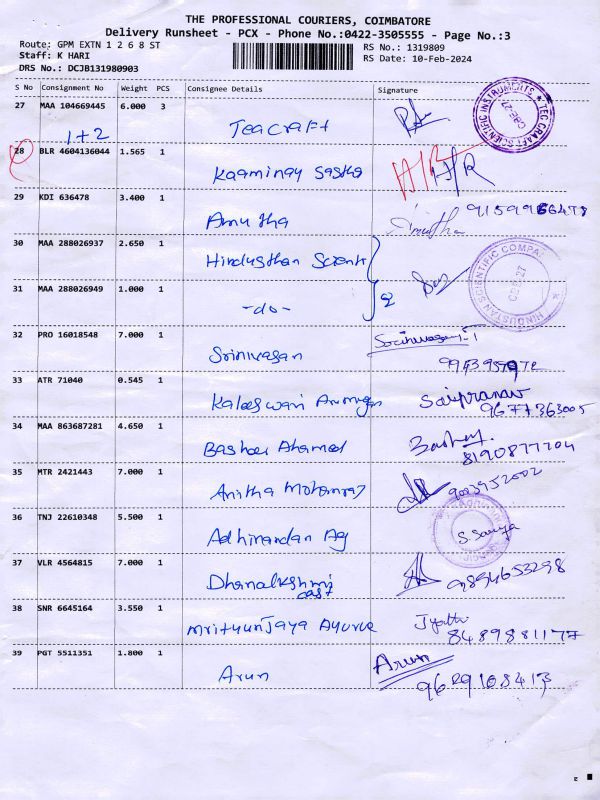 THE PROFESSIONAL COURIERS, COIMBATORE
Delivery Runsheet - PCX - Phone No.:0422-3505555 - Page No.:3
Route: GPM EXTN 1 2 6 8 ST
Staff: K HARI
DRS No.: DCJB131980903
RS No.: 1319809
RS Date: 10-Feb-2024
S No Consignment No Weight PCS Consignee Details Signature
27 MAA 104669445 6.000 3
1+2 Teacraft
28 BLR 4604136044 1.565 1
Kaaminay Sastha
29 KDI 636478 3.400 1
Amutha Amutha
30 MAA 288026937 2.650 1
Hindusthan Scient
31 MAA 288026949 1.000 1
-do- 2
HINDUSTAN SCIENTIFIC COMPA
32 PRO 16018548 7.000 1
Srinivasan
33 ATR 71040 0.545 1
Kaleeswari Saipranav
9677363005
34 MAA 863687281 4.650 1
Basheer Ahamed
8190877204
35 MTR 2421443 7.000 1
Anitha Mohanraj 9003952002
36 TNJ 22610348 5.500 1
Adhinandan Ag S. Sanya
37 VLR 4564815 7.000 1
Dhanalkshmi
east 9894653298
38 SNR 6645164 3.550 1
Mrityunjaya Ayurve Jyothi
8489881177
39 PGT 5511351 1.800 1
Arun Arun
9629108413